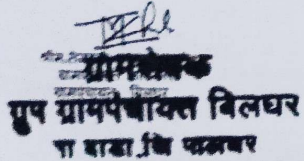 ग्रामसेवक
ग्रुप ग्रामपंचायत बिलघर
ता वाडा जि पालघर